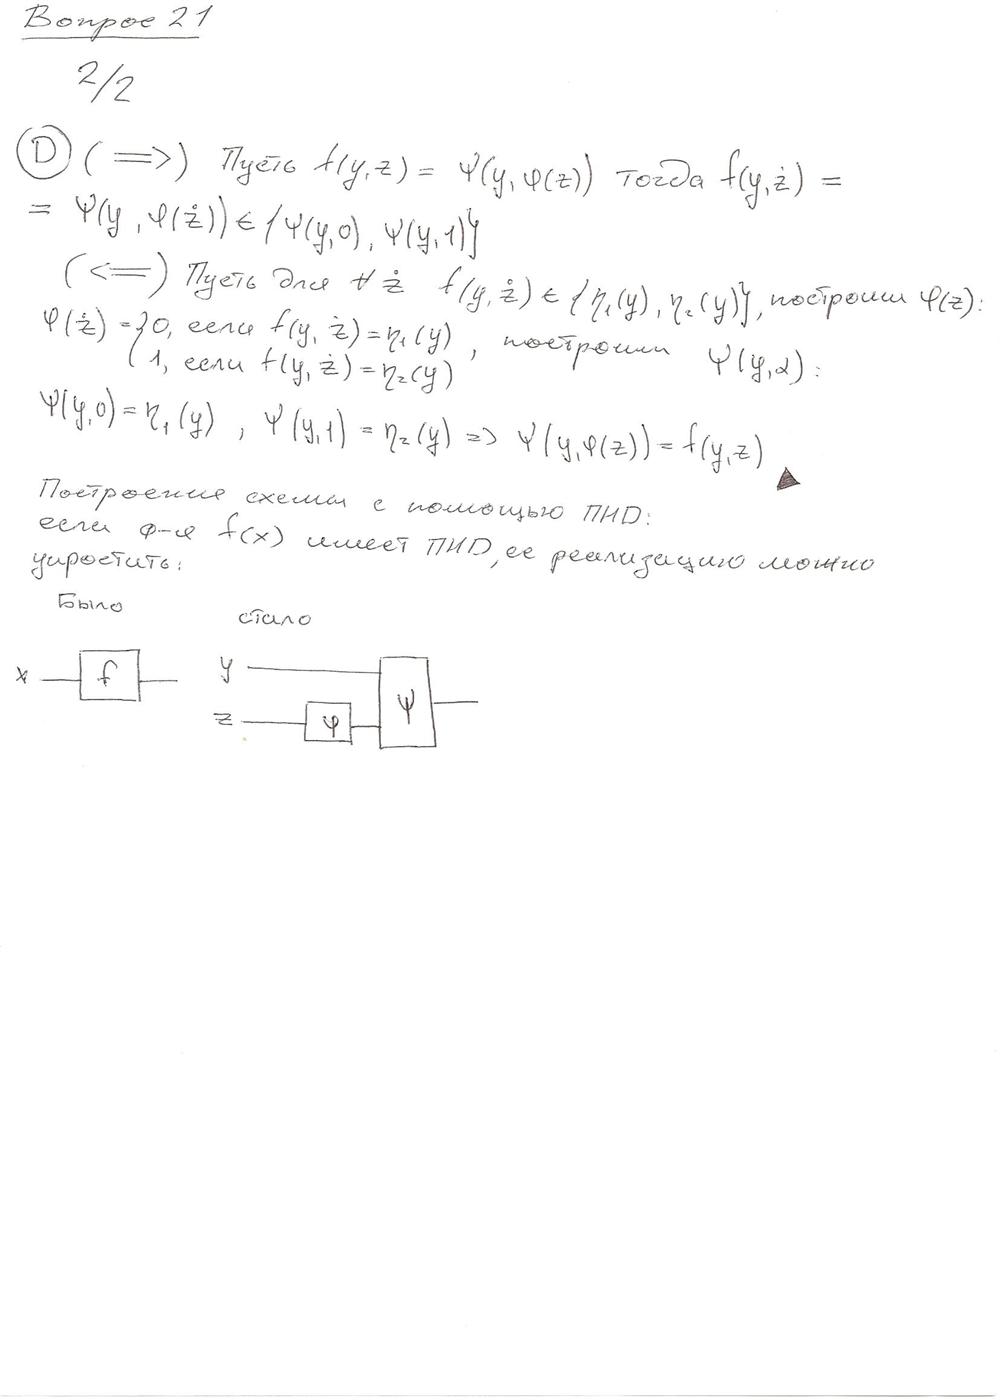 Вопрос 21
2/2
Ⓓ (⇒) Пусть f(y,z) = Ψ(y, φ(z)) тогда f(y,ż) =
= Ψ(y, φ(ż)) ∈ {Ψ(y,0), Ψ(y,1)}
(⇐) Пусть для ∀ ż f(y,ż) ∈ {η₁(y), η₂(y)}, построим φ(z):
φ(ż) = { 0, если f(y,ż) = η₁(y)
1, если f(y,ż) = η₂(y) , построим Ψ(y,α):
Ψ(y,0) = η₁(y) , Ψ(y,1) = η₂(y) => Ψ(y,φ(z)) = f(y,z)
Построение схемы с помощью ПНД:
если ф-я f(x) имеет ПНД, ее реализацию можно
упростить:
Было стало
x f y Ψ
z φ